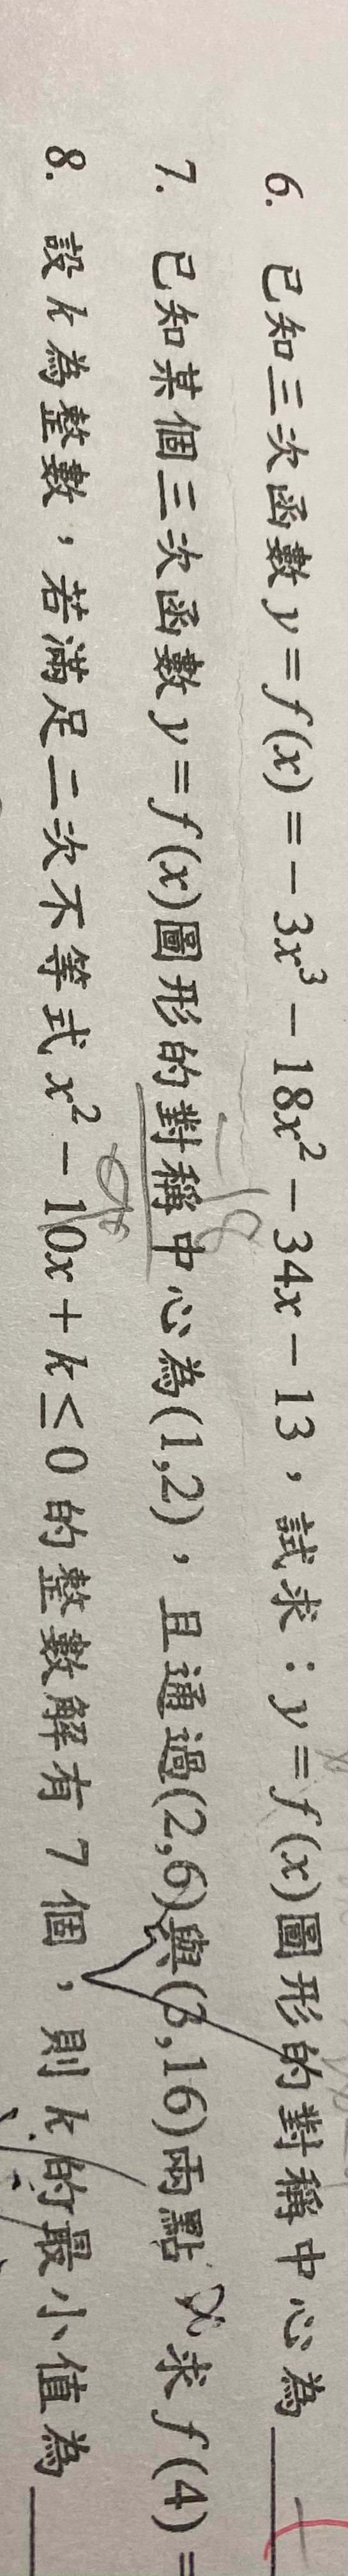 6. 已知三次函數 y=f(x)=-3x³-18x²-34x-13,試求:y=f(x)圖形的對稱中心為
7. 已知某個三次函數 y=f(x)圖形的對稱中心為(1,2),且通過(2,6)與(3,16)兩點 求 f(4)=
8. 設 k 為整數,若滿足二次不等式 x²-10x+k≤0 的整數解有 7 個,則 k 的最小值為